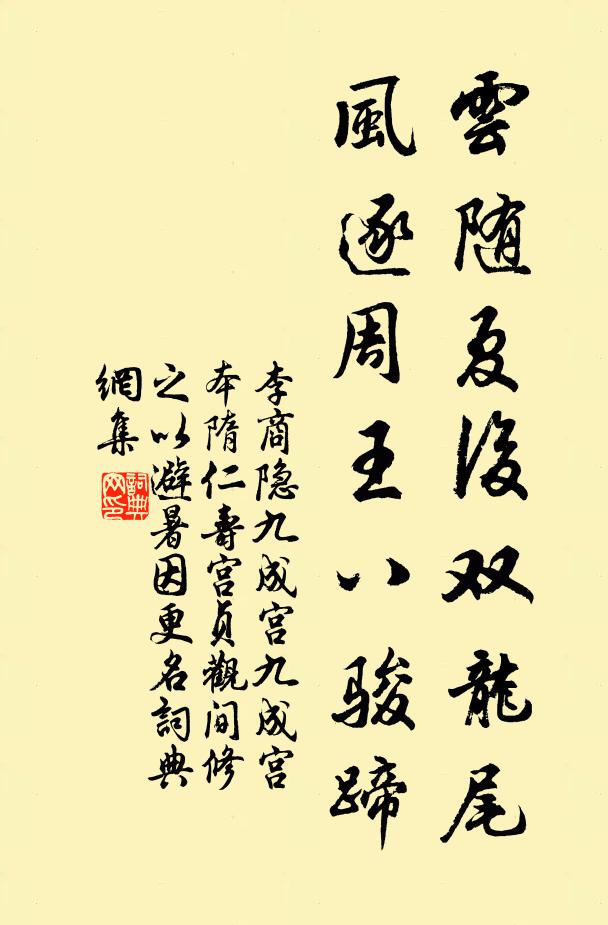 雲随夏後双龍尾
風逐周王八骏蹄
李商隐九成宫九成宫
本隋仁壽宫貞觀间修
之以避暑因更名詞典
網集
詞典
网印